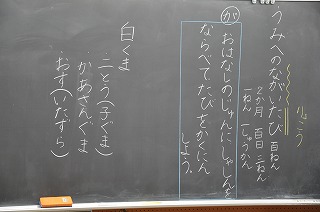 うみへのながいたび
百ねん
2か月 百日 三ねん
一ねん 一しゅうかん
が
おはなしのじゅんにしゃしんを
ならべてたびをかくにん
しよう。
白くま
二とう(子ぐま)
かあさんぐま
おす(いたずら)